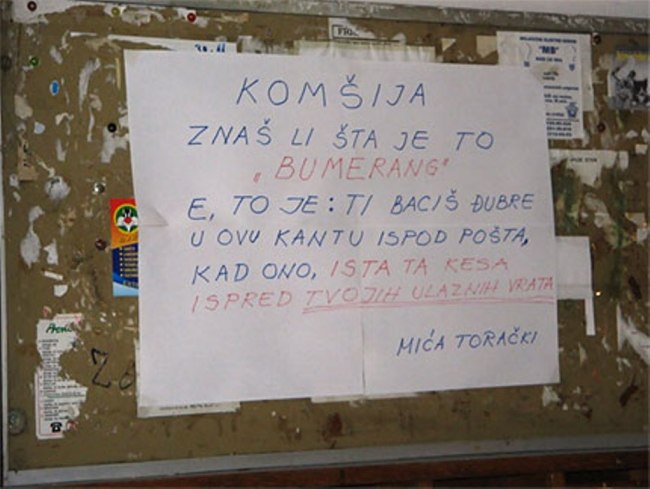 KOMŠIJA
ZNAŠ LI ŠTA JE TO
„BUMERANG"
E, TO JE: TI BACIŠ ĐUBRE
U OVU KANTU ISPOD POŠTA,
KAD ONO, ISTA TA KESA
ISPRED TVOJIH ULAZNIH VRATA
MIĆA TORAČKI
"MB"